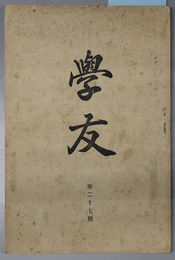 學友
第二十七號